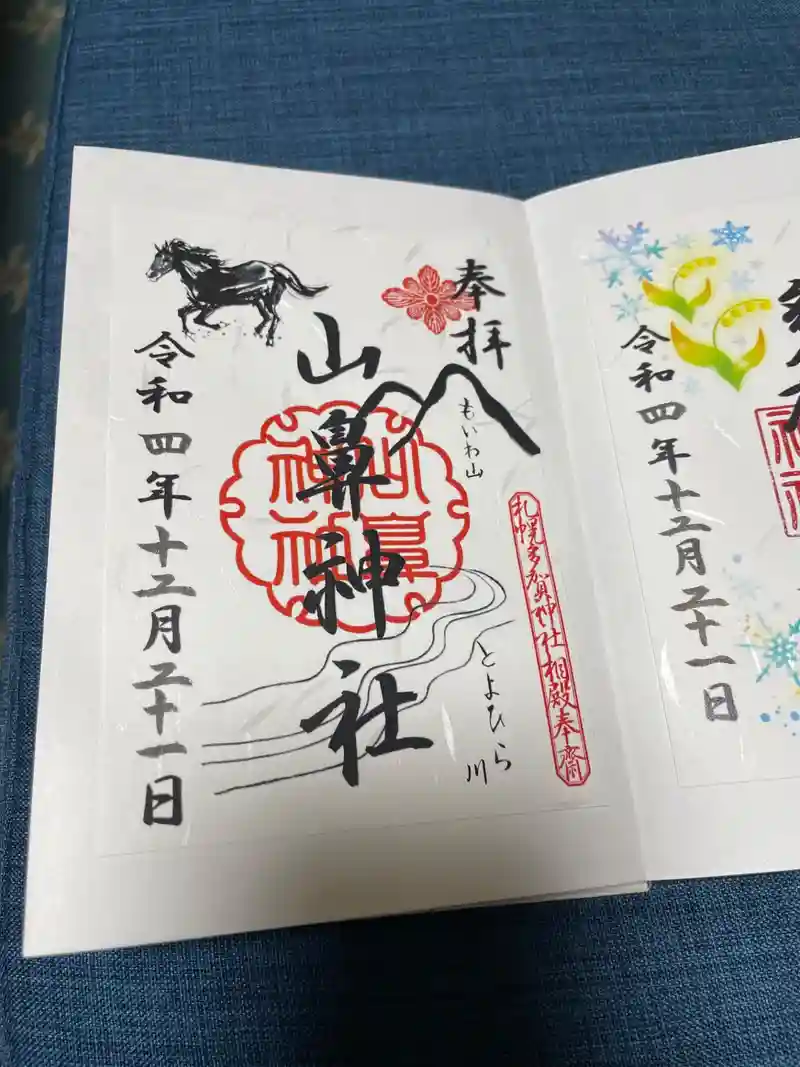 奉拝
山鼻神社
もいわ山
とよひら川
札幌多賀神社相殿奉齋
山鼻神社
令和四年十二月二十一日
令和四年十二月二十一日